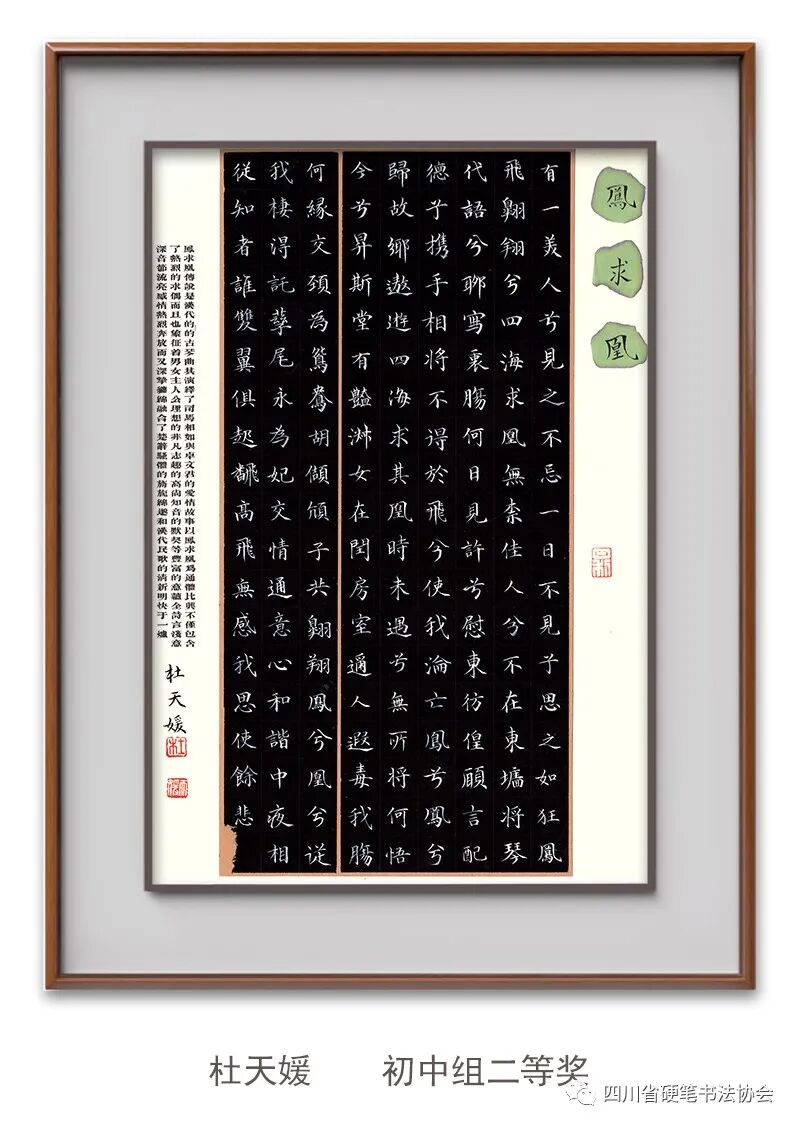 鳳求凰
有一美人兮見之不忘一日不見兮思之如狂鳳
飛翱翔兮四海求凰無柰佳人兮不在東墻將琴
代語兮聊寫衷腸何日見許兮慰東彷徨願言配
德兮攜手相將不得於飛兮使我淪亡鳳兮鳳兮
歸故鄉遨遊四海求其凰時未遇兮無所將何悟
今兮昇斯堂有豔淑女在閨房室邇人遐毒我腸
何緣交頸為鴛鴦胡頡頏兮共翱翔鳳兮凰兮從
我棲得託孳尾永為妃交情通意心和諧中夜相
從知者誰雙翼俱起翻高飛無感我思使餘悲
鳳求凰傳說是漢代的的古琴曲其演繹了司馬相如與卓文君的愛情故事以鳳求凰為通體比興不僅包含
了熱烈的求偶而且也象征着男女主人公理想的非凡志趣的高尚知音的默契等豐富的意蘊全詩言淺意
深音節流亮感情熱烈奔放而又深摯纏綿融合了楚辭騷體的旖旎綿邈和漢代民歌的清新明快于一爐
杜天媛
杜天媛 初中组二等奖
四川省硬笔书法协会